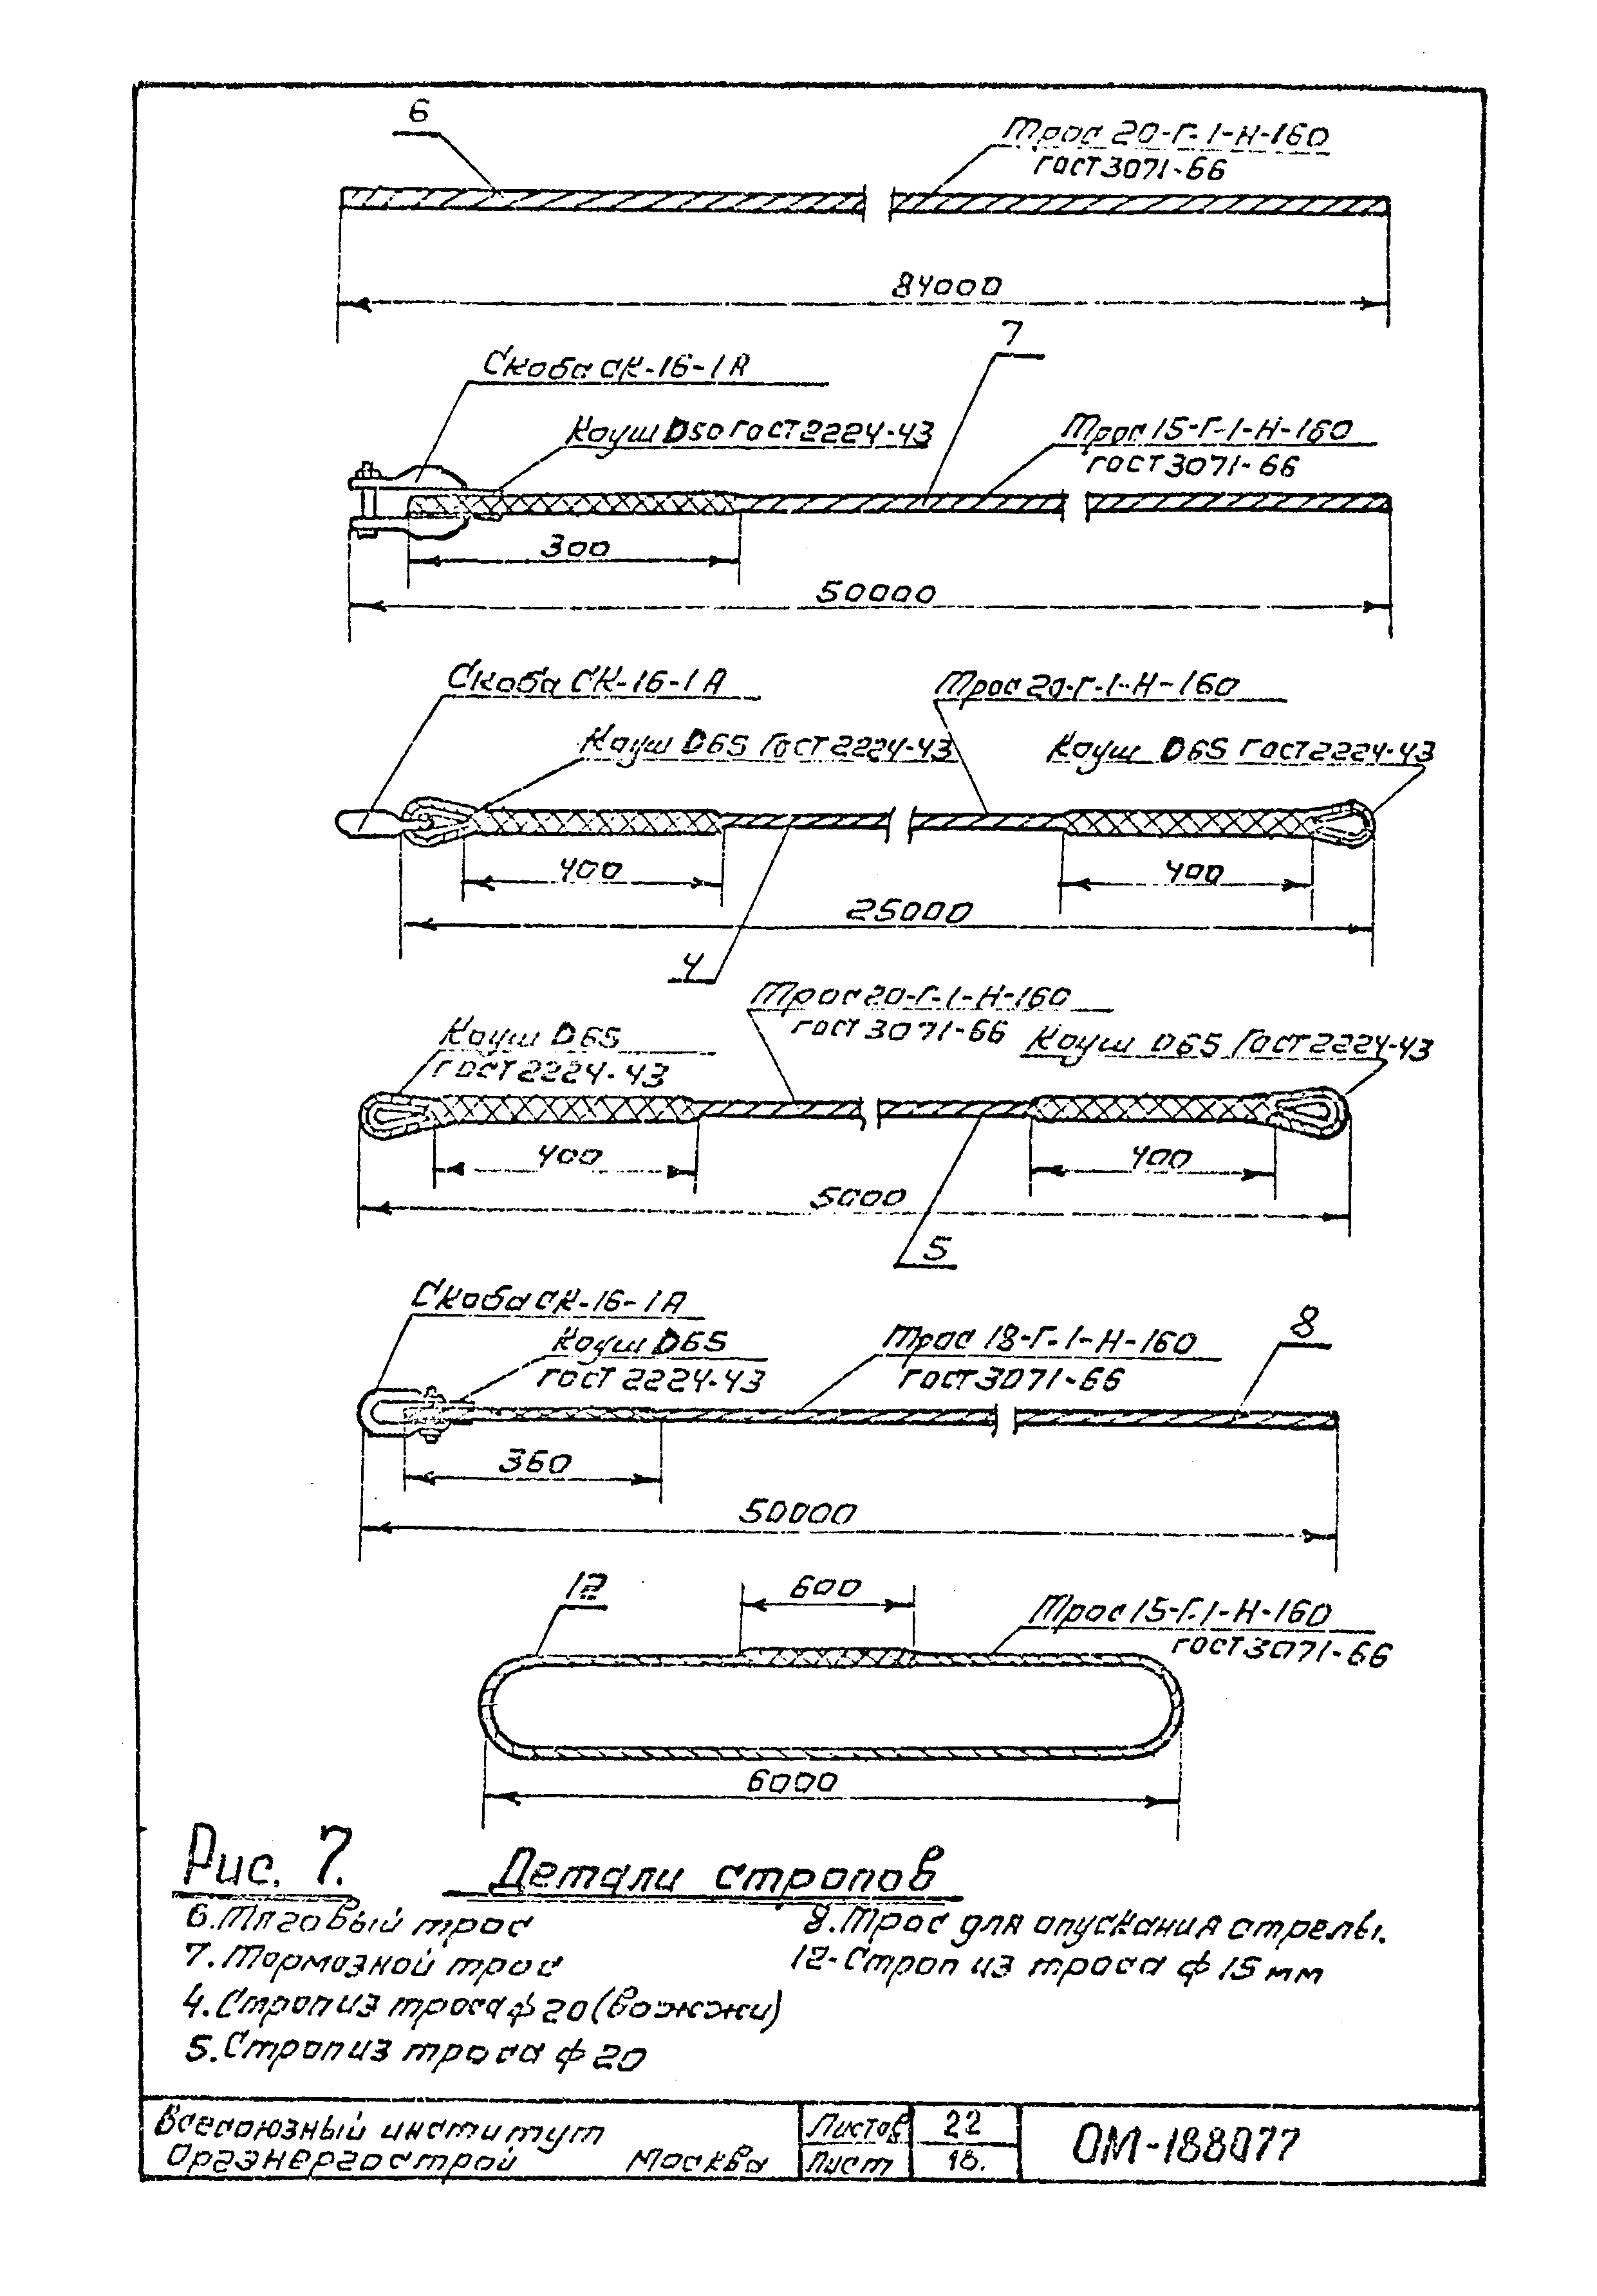 6
Трос 20-Г-1-Н-160
гост 3071-66
84000
7
Скоба СК-16-1А
Коуш D50 гост 2224-43
Трос 15-Г-1-Н-160
гост 3071-66
300
50000
Скоба СК-16-1А
Трос 20-Г-1-Н-160
Коуш D65 гост 2224-43
Коуш D65 гост 2224-43
400
400
25000
4
Трос 20-Г-1-Н-160
гост 3071-66
Коуш D65
гост 2224-43
Коуш D65 гост 2224-43
400
400
5000
5
Скоба СК-16-1А
Коуш D65
гост 2224-43
Трос 18-Г-1-Н-160
гост 3071-66
8
360
50000
12
600
Трос 15-Г.1-Н-160
гост 3071-66
6000
Рис. 7. Детали стропов
6. Тяговый трос
7. Тормозной трос
4. Строп из троса ф 20 (вожжи)
5. Строп из троса ф 20
8. Трос для опускания стрелы.
12- Строп из троса ф 15 мм
Всесоюзный институт
Оргэнергострой Москва
Листов 22
Лист 18.
ОМ-188077